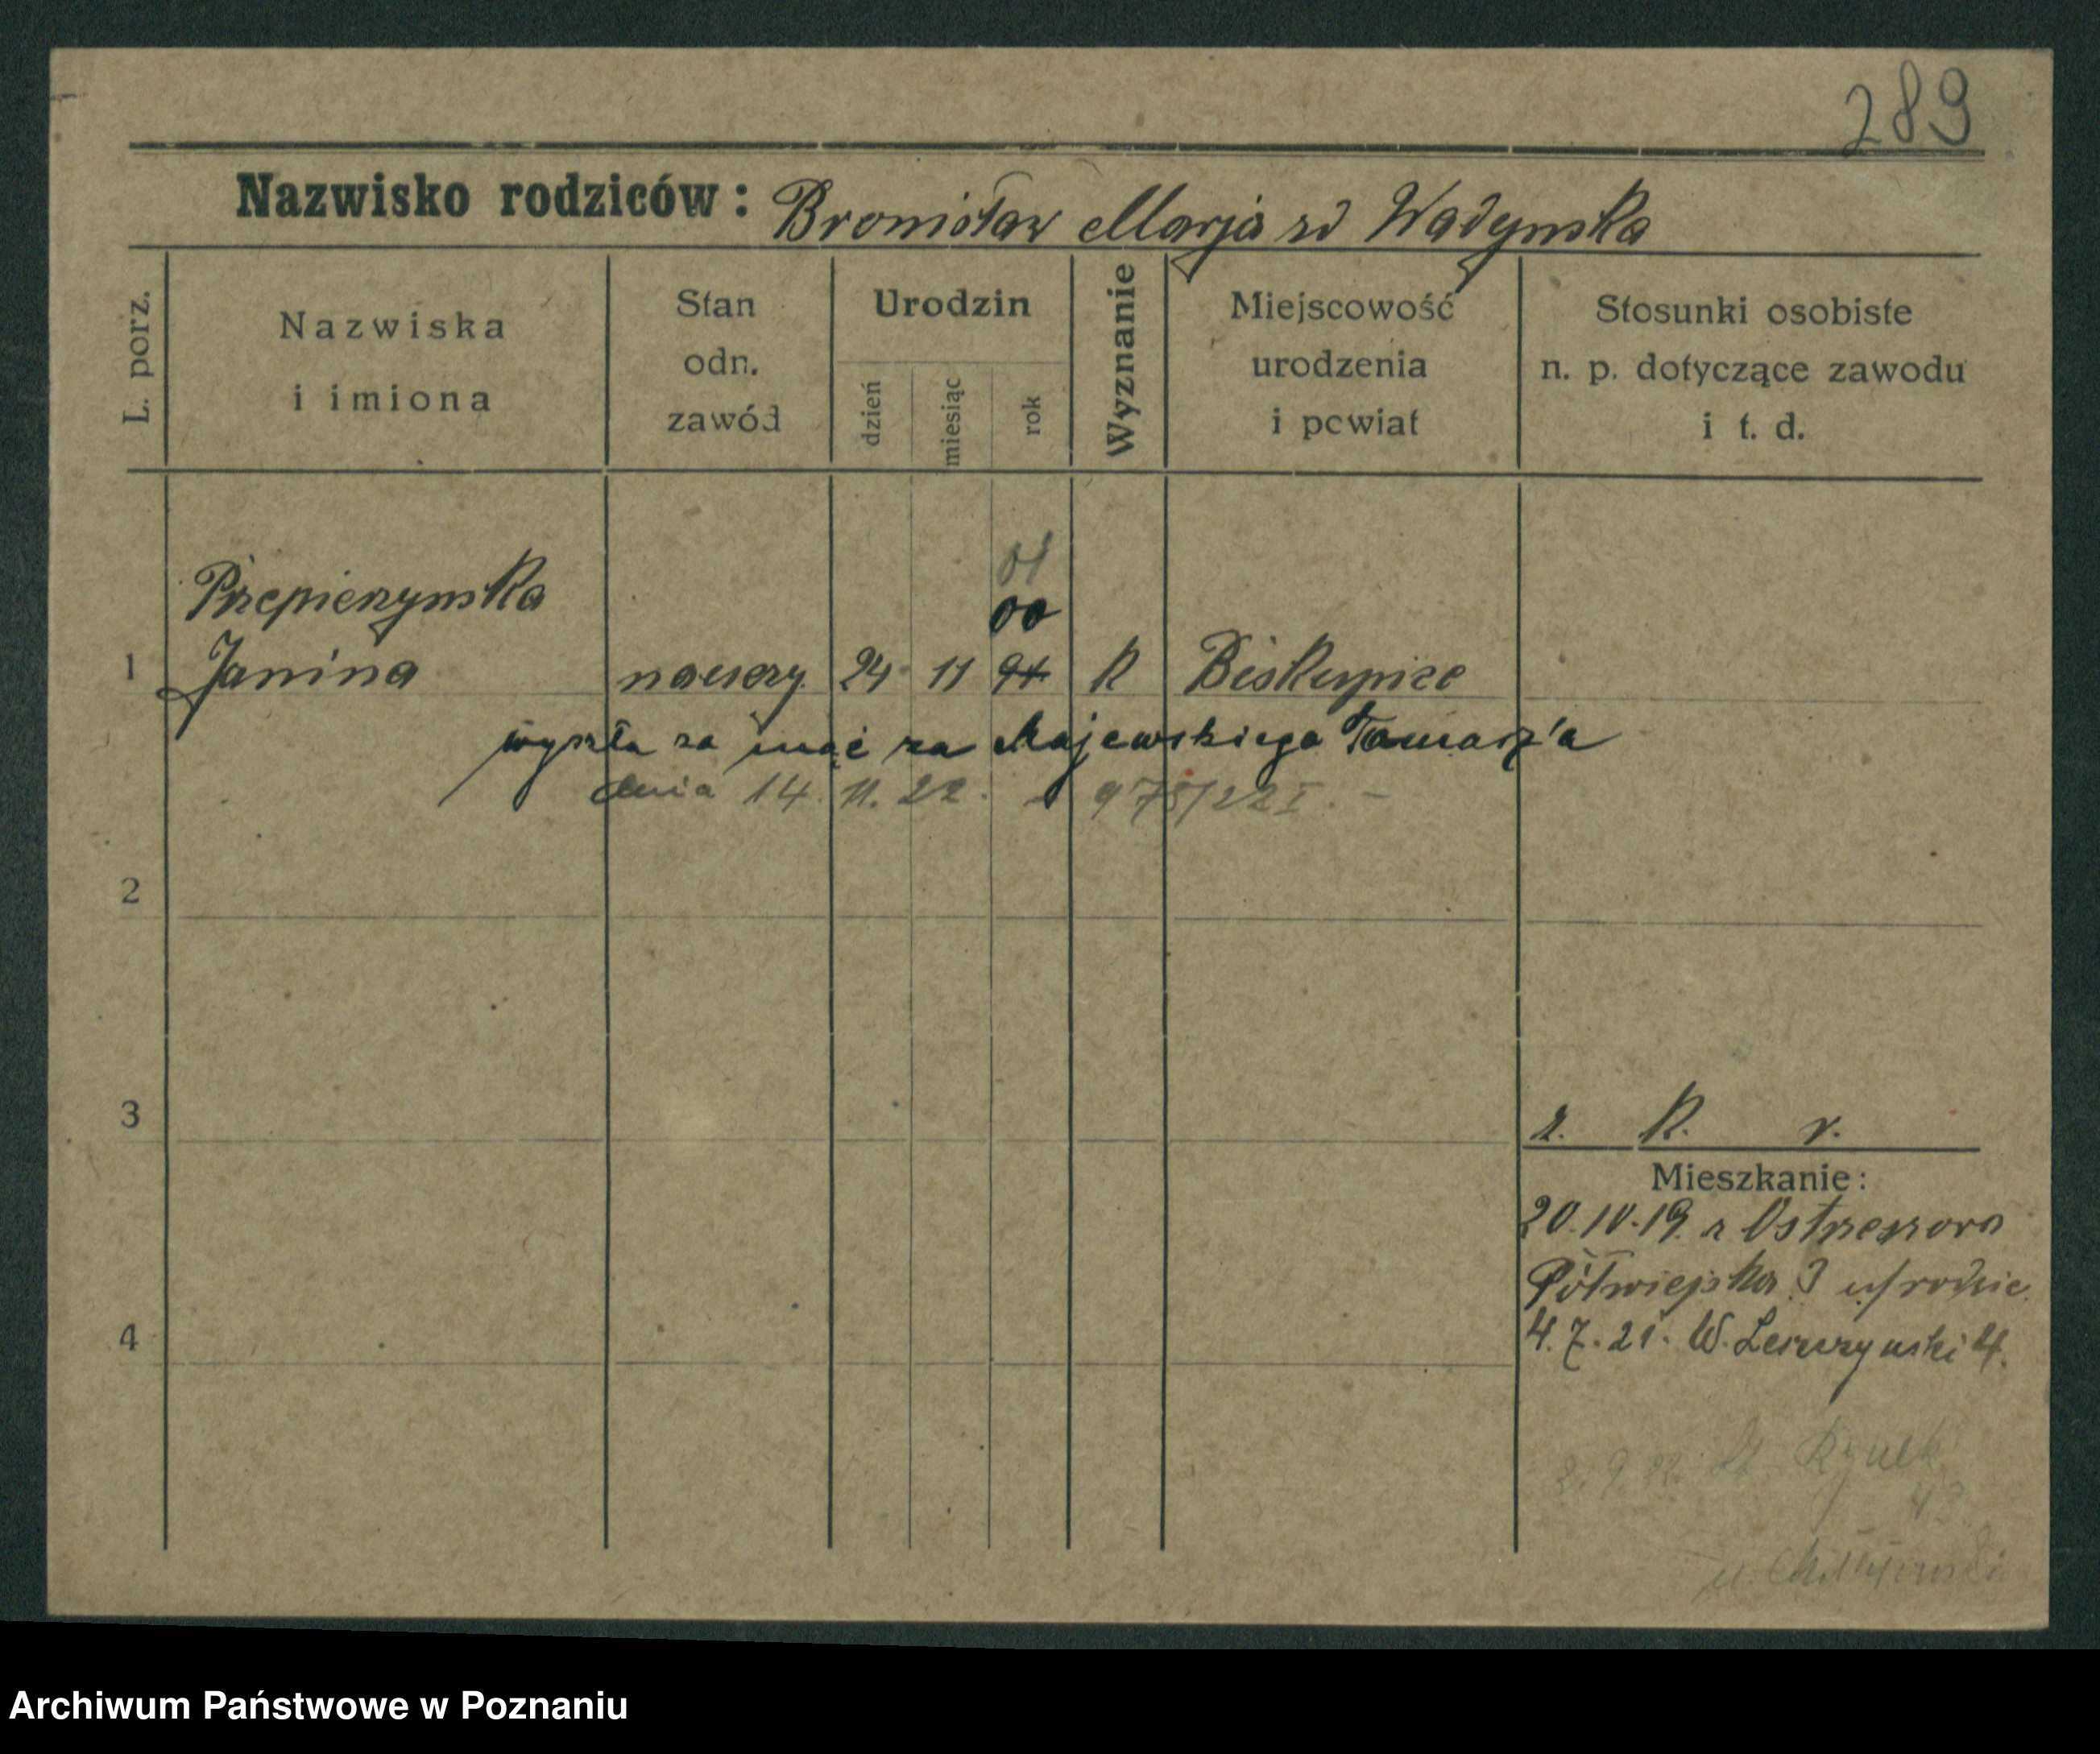 289
Nazwisko rodziców: Bronisław Marja zd Wadyńska
L. porz.
Nazwiska
i imiona
Stan
odn.
zawód
Urodzin
dzień
miesiąc
rok
Wyznanie
Miejscowość
urodzenia
i powiat
Stosunki osobiste
n. p. dotyczące zawodu
i t. d.
01
Przepierzynska
00
1 Janina nauczy. 24 11 94 K Biskupice
wyszła za mąż za Majewskiego Tomasz'a
dnia 14. 11. 22. 975/22 I. -
2
3
z. K. r.
Mieszkanie:
20.10.19. z
Półwiejska 3 u/rodzic.
4
4.7.21. W.
2. 9. 22. St. Rynek
43
u
Archiwum Państwowe w Poznaniu